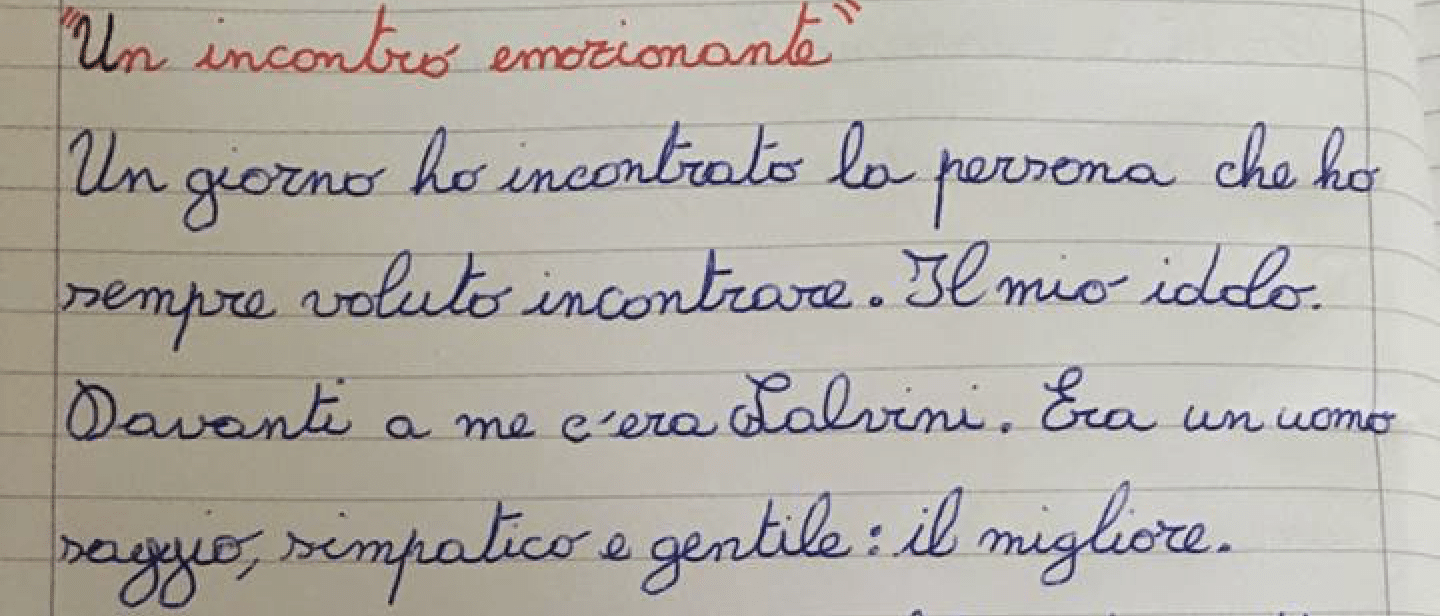 "Un incontro emozionante"
Un giorno ho incontrato la persona che ho
sempre voluto incontrare. Il mio idolo.
Davanti a me c'era Salvini. Era un uomo
saggio, simpatico e gentile: il migliore.